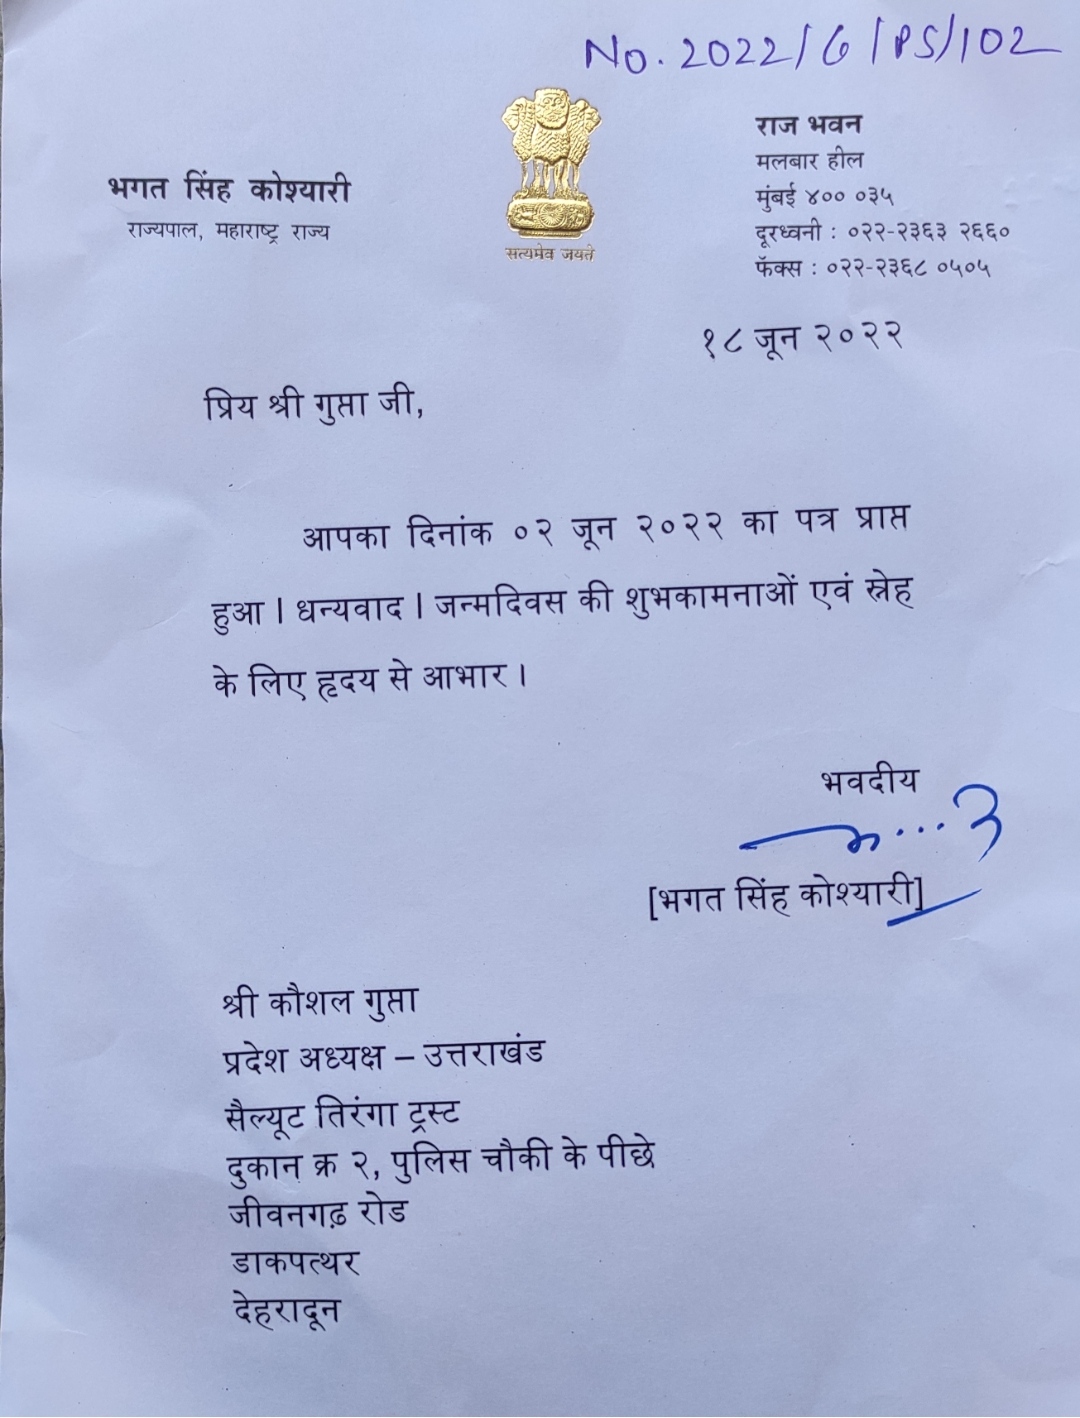 No. 2022/G/PS/102
भगत सिंह कोश्यारी
राज्यपाल, महाराष्ट्र राज्य
सत्यमेव जयते
राज भवन
मलबार हील
मुंबई ४०० ०३५
दूरध्वनी : ०२२-२३६३ २६६०
फॅक्स : ०२२-२३६८ ०५०५
१८ जून २०२२
प्रिय श्री गुप्ता जी,
आपका दिनांक ०२ जून २०२२ का पत्र प्राप्त
हुआ । धन्यवाद । जन्मदिवस की शुभकामनाओं एवं स्नेह
के लिए हृदय से आभार ।
भवदीय
[भगत सिंह कोश्यारी]
श्री कौशल गुप्ता
प्रदेश अध्यक्ष – उत्तराखंड
सैल्यूट तिरंगा ट्रस्ट
दुकान क्र २, पुलिस चौकी के पीछे
जीवनगढ़ रोड
डाकपत्थर
देहरादून